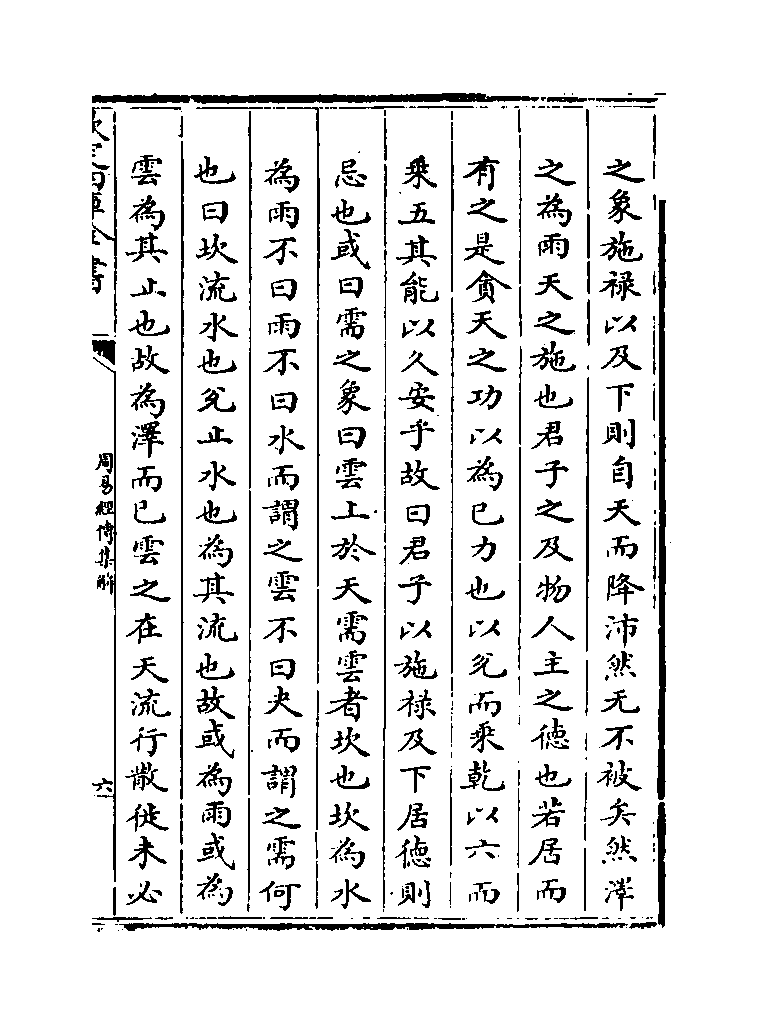 之象施禄以及下則自天而降沛然无不被矣然澤
之為雨天之施也君子之及物人主之德也若居而
有之是貪天之功以為已力也以兊而乗乾以六而
乗五其能以久安乎故曰君子以施禄及下居德則
忌也或曰需之象曰雲上於天需雲者坎也坎為水
為雨不曰雨不曰水而謂之雲不曰夬而謂之需何
也曰坎流水也兊止水也為其流也故或為雨或為
雲為其止也故為澤而已雲之在天流行散徙未必
欽定四庫全書
周易經傳集解
六